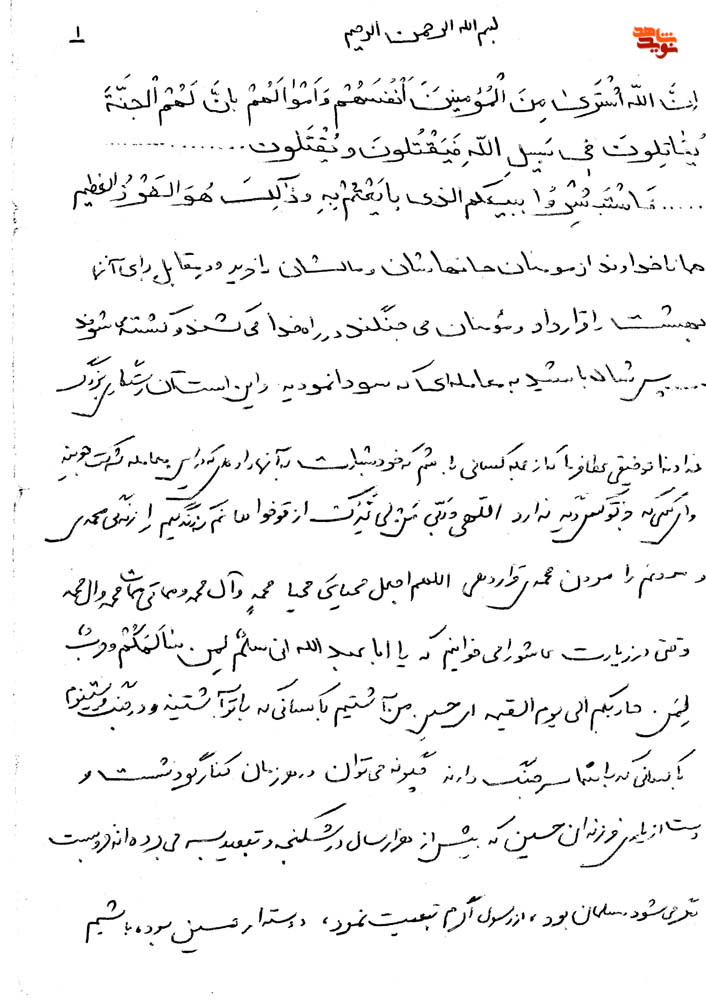 بسم الله الرحمن الرحیم
۱
نوید شاهد
إنَّ اللّهَ اُشتَرَىٰ مِنَ الْمُؤمِنینَ اَنْفُسَهُمْ وَ اَمْوٰالَهُمْ بِانَّ لَهُمْ الْجَنَّةَ
یُقٰاتِلُونَ فی سَبیلِ اللّهِ فَیَقْتُلُونَ وَ یُقْتَلُون ..............
..... فَاسْتَبْشِرُوا ببیعکم الذی بٰایَعْتُمْ بِهِ وَ ذٰالِکَ هُوَ الفَوْزُ العَظیم
همانا خداوند از مومنان جانهایشان و مالشان را خرید و در مقابل برای آنها
بهشت را قرار داد و مؤمنان می جنگند در راه خدا می کشند و کشته می شوند
..... پس شاد باشید به معامله ای که سودا نمودید و این است آن رستگاری بزرگ
خداوندا توفیقی عطا فرما که از جمله کسانی باشم که خود بشارت به آنها داده که در این معامله شرکت
ندارد اللهی و ربی من لی غیرک از تو می خواهم که زندگیم را زندگی محمدی
و مردنم را مردن محمدی قرار دهی اللهم اجعل محیای محیا محمدٍ و آل محمد و مماتی ممات محمد و ال محمد
وقتی در زیارت عاشورا می خوانیم که یا ابا عبد الله انی سلمٌ لِمِن سٰالَمَکُمْ و حربٌ
لِمَن حاربکم الی یوم القیمه ای حسین من آشتیم با کسانی که با تو آشتیند و در جنگ و ستیزم
با کسانی که با شما سر جنگ دارند چگونه می توان در این زمان کنار گود نشست و
دست از یاری فرزندان حسین که بیش از هزار سال در شکنجه و تبعید بسر می برده اند فرو بست
مگر می شود مسلمان بود ، از رسول اکرم تبعیت نمود ، دوستدار حسین بوده باشیم